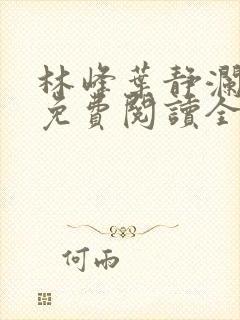 林峰葉靜瀾
免費閱讀全
何雨